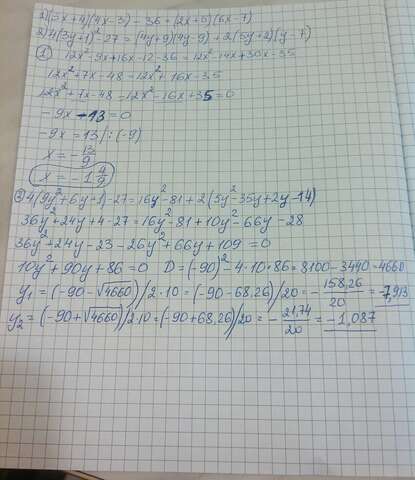 1) (3x+4)(4x-3) - 36 = (2x+5)(6x-7)
2) 4(3y+1)²-27 = (4y+9)(4y-9) + 2(5y+2)(y-7)
① 12x²-9x+16x-12-36 = 12x²-14x+30x-35
12x²+7x-48 = 12x²+16x-35
12x²+7x-48-12x²-16x+35=0
-9x-13=0
-9x=13|:(-9)
x=-13/9
x=-1 4/9
② 4(9y²+6y+1)-27=16y²-81+2(5y²-35y+2y-14)
36y²+24y+4-27=16y²-81+10y²-66y-28
36y²+24y-23-26y²+66y+109=0
10y²+90y+86=0 D=(-90)²-4·10·86=8100-3440=4660
y₁=(-90-√4660)/2·10=(-90-68,26)/20=-158,26/20=-7,913
y₂=(-90+√4660)/2·10=(-90+68,26)/20=-21,74/20=-1,087